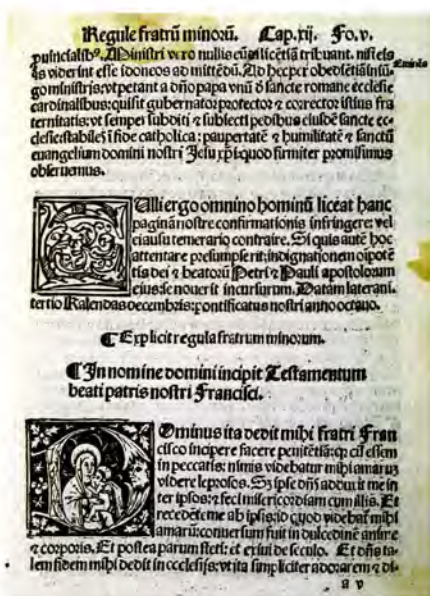 Regule fratrū minorū. Cap.xij. Fo.v.
puincialibꝰ. Ministri vero nullis eūdi licētiā tribuant. nisi eis
quos viderint esse idoneos ad mittēdū. Ad hec per obediētiā iniū-
go ministris: vt petant a dño papa vnū d̄ sancte romane ecclesie
cardinalibus: qui sit gubernator protector ⁊ corrector istius fra
ternitatis: vt semper subditi ⁊ subiecti pedibus eiusdē sancte ec-
clesie: stabiles ī fide catholica: paupertatē ⁊ humilitatē ⁊ sanctū
euangelium domini nostri Jesu xp̄i: quod firmiter promisimus
obseruemus.
Nulli ergo omnino hominū liceat hanc
paginā nostre confirmationis infringere: vel
ei ausu temerario contraire. Si quis autē hoc
attentare presumpserit: indignationem oīpotē
tis dei ⁊ beatorū Petri ⁊ Pauli apostolorum
eius: se nouerit incursurum. Datam laterani.
tertio Kalendas decembris: pontificatus nostri anno octauo.
¶ Explicit regula fratrum minorum.
¶ In nomine domini incipit Testamentum
beati patris nostri Francisci.
Dominus ita dedit mihi fratri Fran
cisco incipere facere penitētiā: q cū essem
in peccatis: nimis videbatur mihi amaruꝫ
videre leprosos. Sꝫ ipse dñs adduxit me in
ter ipsos: ⁊ feci misericordiam cum illis. Et
recedēte me ab ipsis: id quod videbať mihi
amarū: conuersum fuit in dulcedinē anime
⁊ corporis. Et postea parum steti: et exiui de seculo. Et dñs ta-
lem fidem mihi dedit in ecclesijs: vt ita simpliciter adorarem ⁊ di-
a v